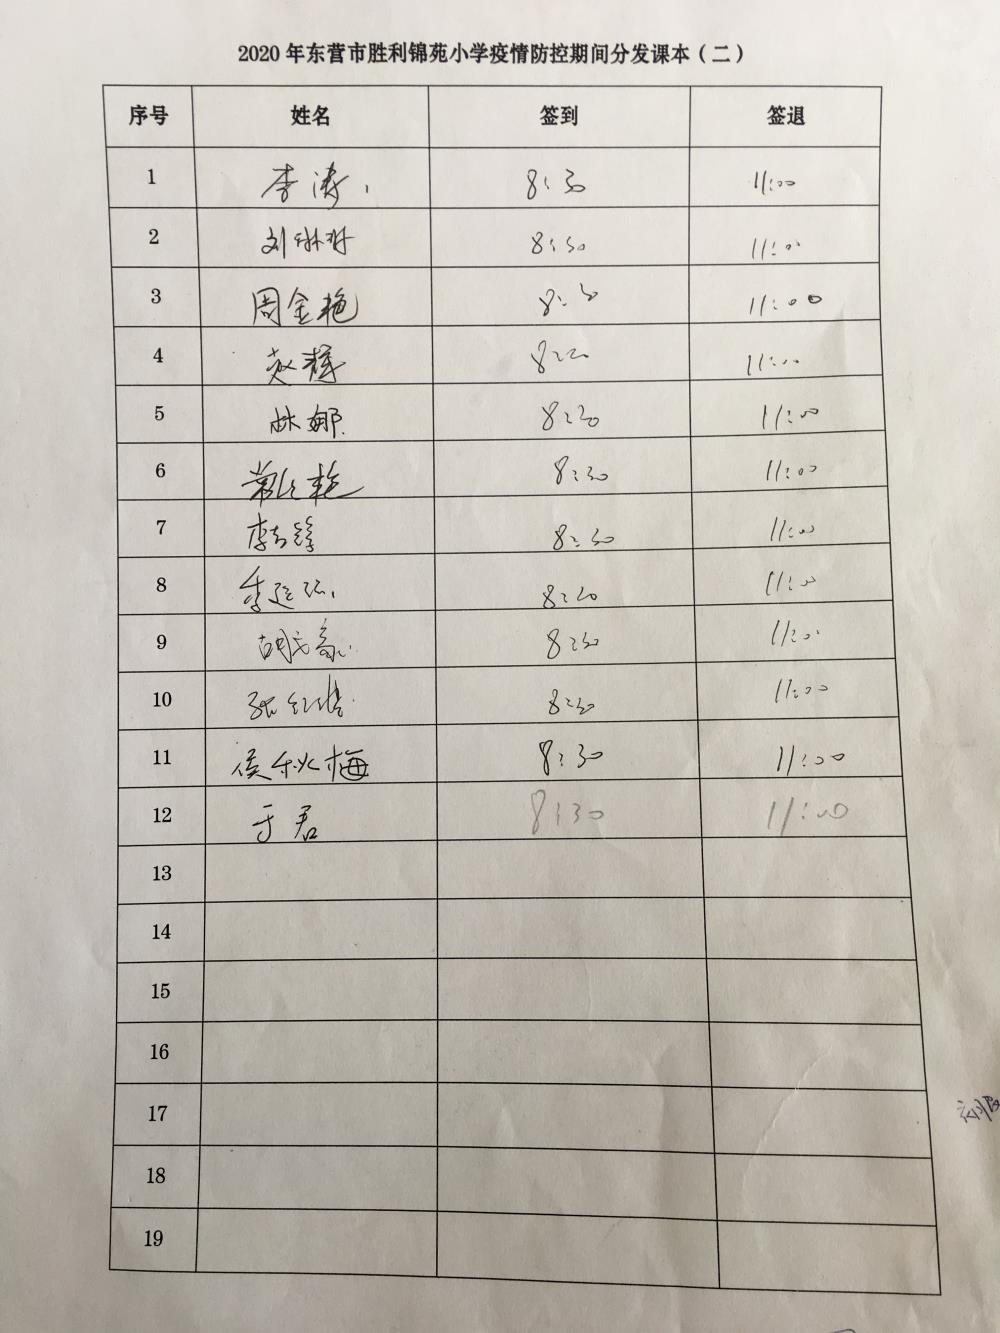 2020年东营市胜利锦苑小学疫情防控期间分发课本（二）
序号 姓名 签到 签退
1 李涛 8:30 11:00
2 刘琳琳 8:30 11:00
3 周金艳 8:30 11:00
4 赵辉 8:20 11:00
5 林娜 8:30 11:00
6 艳 8:30 11:00
7 李 8:30 11:00
8 季延 8:20 11:00
9 胡 8:30 11:00
10 张红 8:30 11:00
11 侯秋梅 8:30 11:00
12 于君 8:30 11:00
13
14
15
16
17
18
19